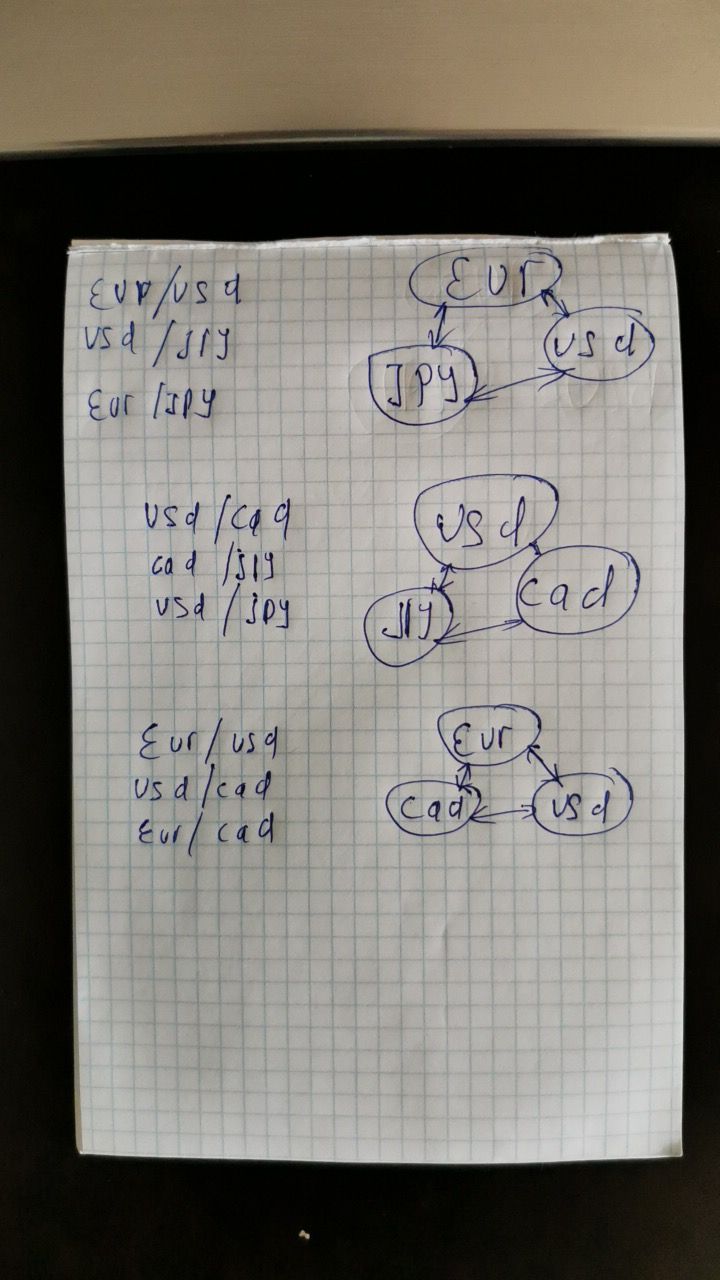 Eur/usd
usd/JPY
Eur/JPY
Eur
usd
JPY
usd/cad
cad/JPY
usd/JPY
usd
cad
JPY
Eur/usd
usd/cad
Eur/cad
Eur
cad
usd